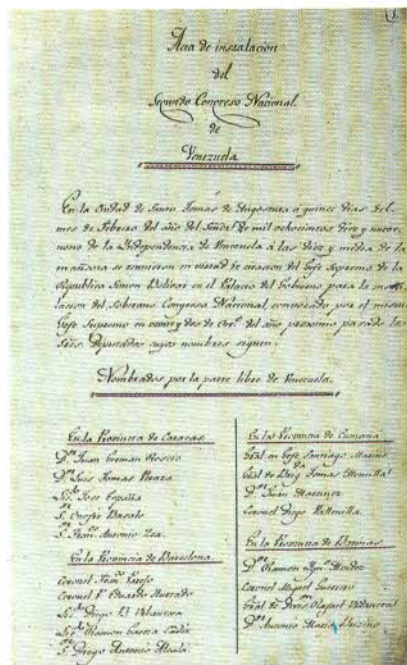 Acta de instalacion
del
Segundo Congreso Nacional.
de
Venezuela.
En la Ciudad de Santo Tomas de Angostura á quince dias del
mes de Febrero del año del Señor de mil ochocientos diez y nueve,
nono de la Independencia de Venezuela á las diez y media de la
mañana se reunieron en virtud de citacion del Gefe Supremo de la
Republica Simon Bolivar en el Palacio del Gobierno para la insta-
lacion del Soberano Congreso Nacional, convocado por el mismo
Gefe Supremo en veinte y dos de del año proximo pasado los
Sres. Diputados cuyos nombres siguen.
Nombrados por la parte libre de Venezuela.
En la Provincia de Caracas.
Dr. Juan German Roscio
Dr. Luis Tomas Peraza
Ldo. Jose España
Sr. Onofre Basalo
Sr. Franco. Antonio Zea.
En la Provincia de Barcelona.
Coronel Franco. Parejo
Coronel Eduardo Hurtado
Ldo. Diego B. Urbaneja
Ldo. Ramon Garcia Cadiz
Sr. Diego Antonio Alcala
En la Provincia de Cumaná
Gral en Gefe Santiago Mariño
Gral de Brig. Tomas Montilla
Dr. Juan Martinez
Coronel Diego Vallenilla.
En la Provincia de Barinas.
Dr. Ramon Ignco. Mendez
Coronel Miguel Guerrero
Gral de Divon. Rafael Urdaneta
Dr. Antonio Maria Briceño